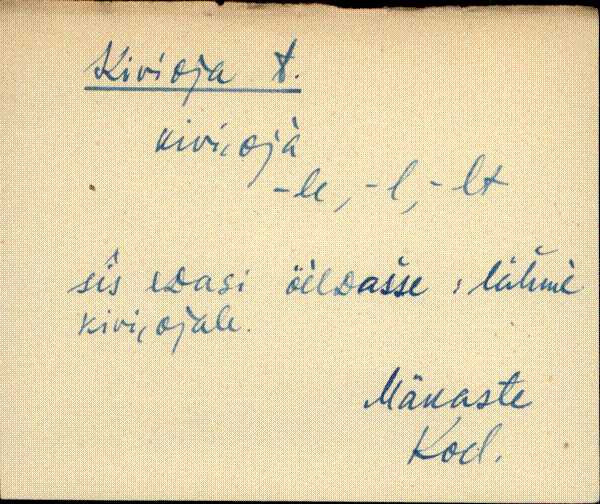 Kivioja t.
kivi,ojà
-le, -l, -lt
sîs eDasi öèlDašse : lähmè
kivi,ojale.
Mäkaste
Kod.